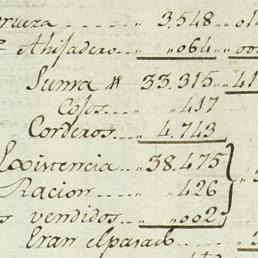 3548 „ 01
Ahijadero „ 064 „ 00
Suma # 33.315 „ 41
Cojos „ 417
Corderos „ 4.743
Existencia „ 38.475
Racion „ 426
vendidos „ „ 002
Eran elpasado